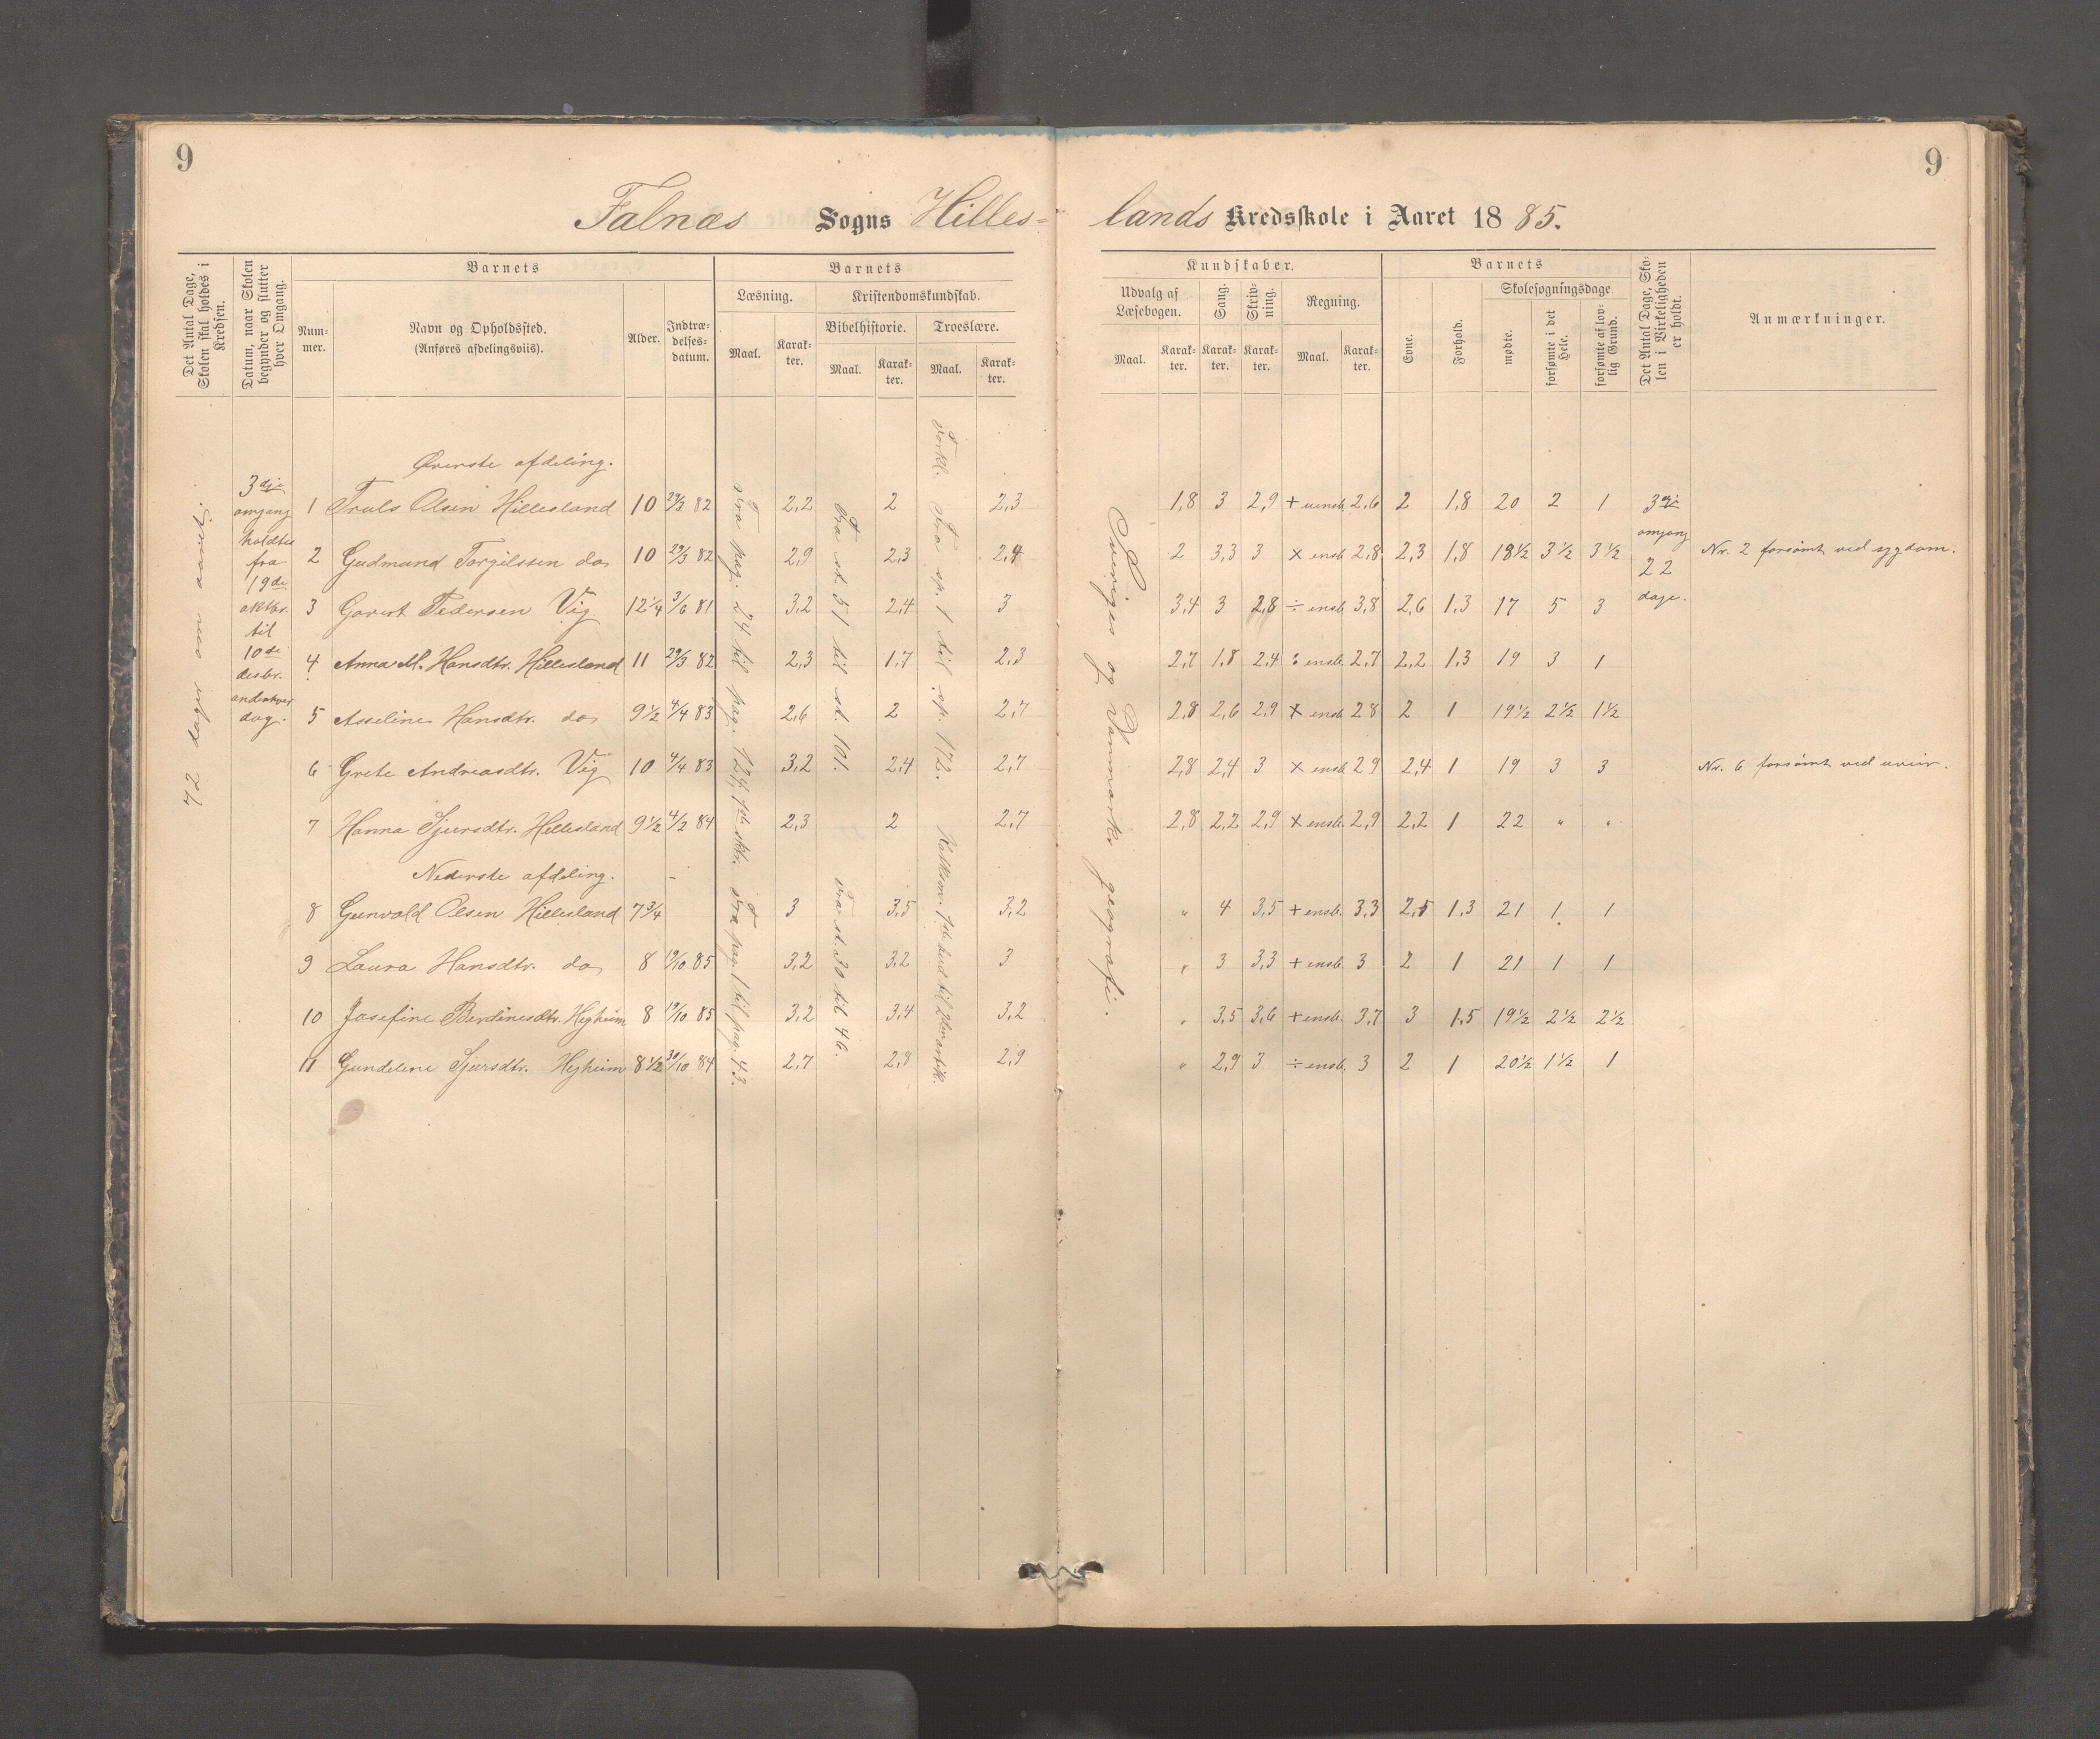 9
9
Falnæs Sogns Hilles-
lands Kredsskole i Aaret 1885.
Det Antal Dage, Skolen skal holdes i Kredsen.
Datum, naar Skolen begynder og slutter hver Omgang.
Barnets
Num-
mer.
Navn og Opholdssted.
(Anføres afdelingsviis).
Alder.
Indtræ-
delses-
datum.
Barnets
Læsning.
Maal.
Karak-
ter.
Kristendomskundskab.
Bibelhistorie.
Maal.
Karak-
ter.
Troeslære.
Maal.
Karak-
ter.
Kundskaber.
Udvalg af
Læsebogen.
Maal.
Karak-
ter.
Sang.
Karak-
ter.
Skriv-
ning.
Karak-
ter.
Regning.
Maal.
Karak-
ter.
Barnets
Evne.
Forhold.
Skolesøgningsdage
mødte.
forsømte i det
Hele.
forsømte af lov-
lig Grund.
Det Antal Dage, Sko-
len i Virkeligheden
er holdt.
Anmærkninger.
72 dage om aaret.
3dje
omgang
holdtes
fra
19de
oktbr.
til
10de
desbr.
andenhver
dag.
Fra pag. 24 til pag. 124, 1ste skr.
Fra pag. 1 til pag. 43.
Fra st. 51 til st. 101.
Fra st. 30 til 46.
Forkl. Fra sp. 1 til sp. 172.
Sveriges og Danmarks geografi.
Øverste afdeling.
1 Truls Olsen Hillesland 10 29/3 82 2,2 2 2,3 1,8 3 2,9 + uensb. 2,6 2 1,8 20 2 1
2 Gudmund Torgilssen do, 10 29/3 82 2,9 2,3 2,4 2 3,3 3 × ensb. 2,8 2,3 1,8 18½ 3½ 3½ Nr. 2 forsømt ved sygdom.
3 Govert Pedersen Vig 12¼ 3/6 81 3,2 2,4 3 3,4 3 2,8 ÷ ensb. 3,8 2,6 1,3 17 5 3
4 Anna M. Hansdtr. Hillesland 11 29/3 82 2,3 1,7 2,3 2,7 1,8 2,4 : ensb. 2,7 2,2 1,3 19 3 1
5 Asseline Hansdtr. do, 9½ 4/4 83 2,6 2 2,7 2,8 2,6 2,9 × ensb. 2 8 2 1 19½ 2½ 1½
6 Grete Andreasdtr. Vig 10 4/4 83 3,2 2,4 2,7 2,8 2,4 3 × ensb. 2 9 2,4 1 19 3 3 Nr. 6 forsømt ved uveir.
7 Hanna Sjursdtr. Hillesland 9½ 4/2 84 2,3 2 2,7 2,8 2,2 2,9 × ensb. 2,9 2,2 1 22 " "
3dje
omgang
22
dage.
Nederste afdeling. -
8 Gunvald Olsen Hillesland 7¾ 3 3,5 3,2 " 4 3,5 + ensb. 3,3 2,5 1,3 21 1 1
9 Laura Hansdtr. do, 8 19/10 85 3,2 3,2 3 " 3 3,3 + ensb. 3 2 1 21 1 1
10 Josefine Berdinesdtr. Hejheim 8 19/10 85 3,2 3,4 3,2 " 3,5 3,6 + ensb. 3,7 3 1,5 19½ 2½ 2½
11 Gundeline Sjursdtr. Hejheim 8½ 30/10 84 2,7 2,8 2,9 " 2,9 3 ÷ ensb. 3 2 1 20½ 1½ 1